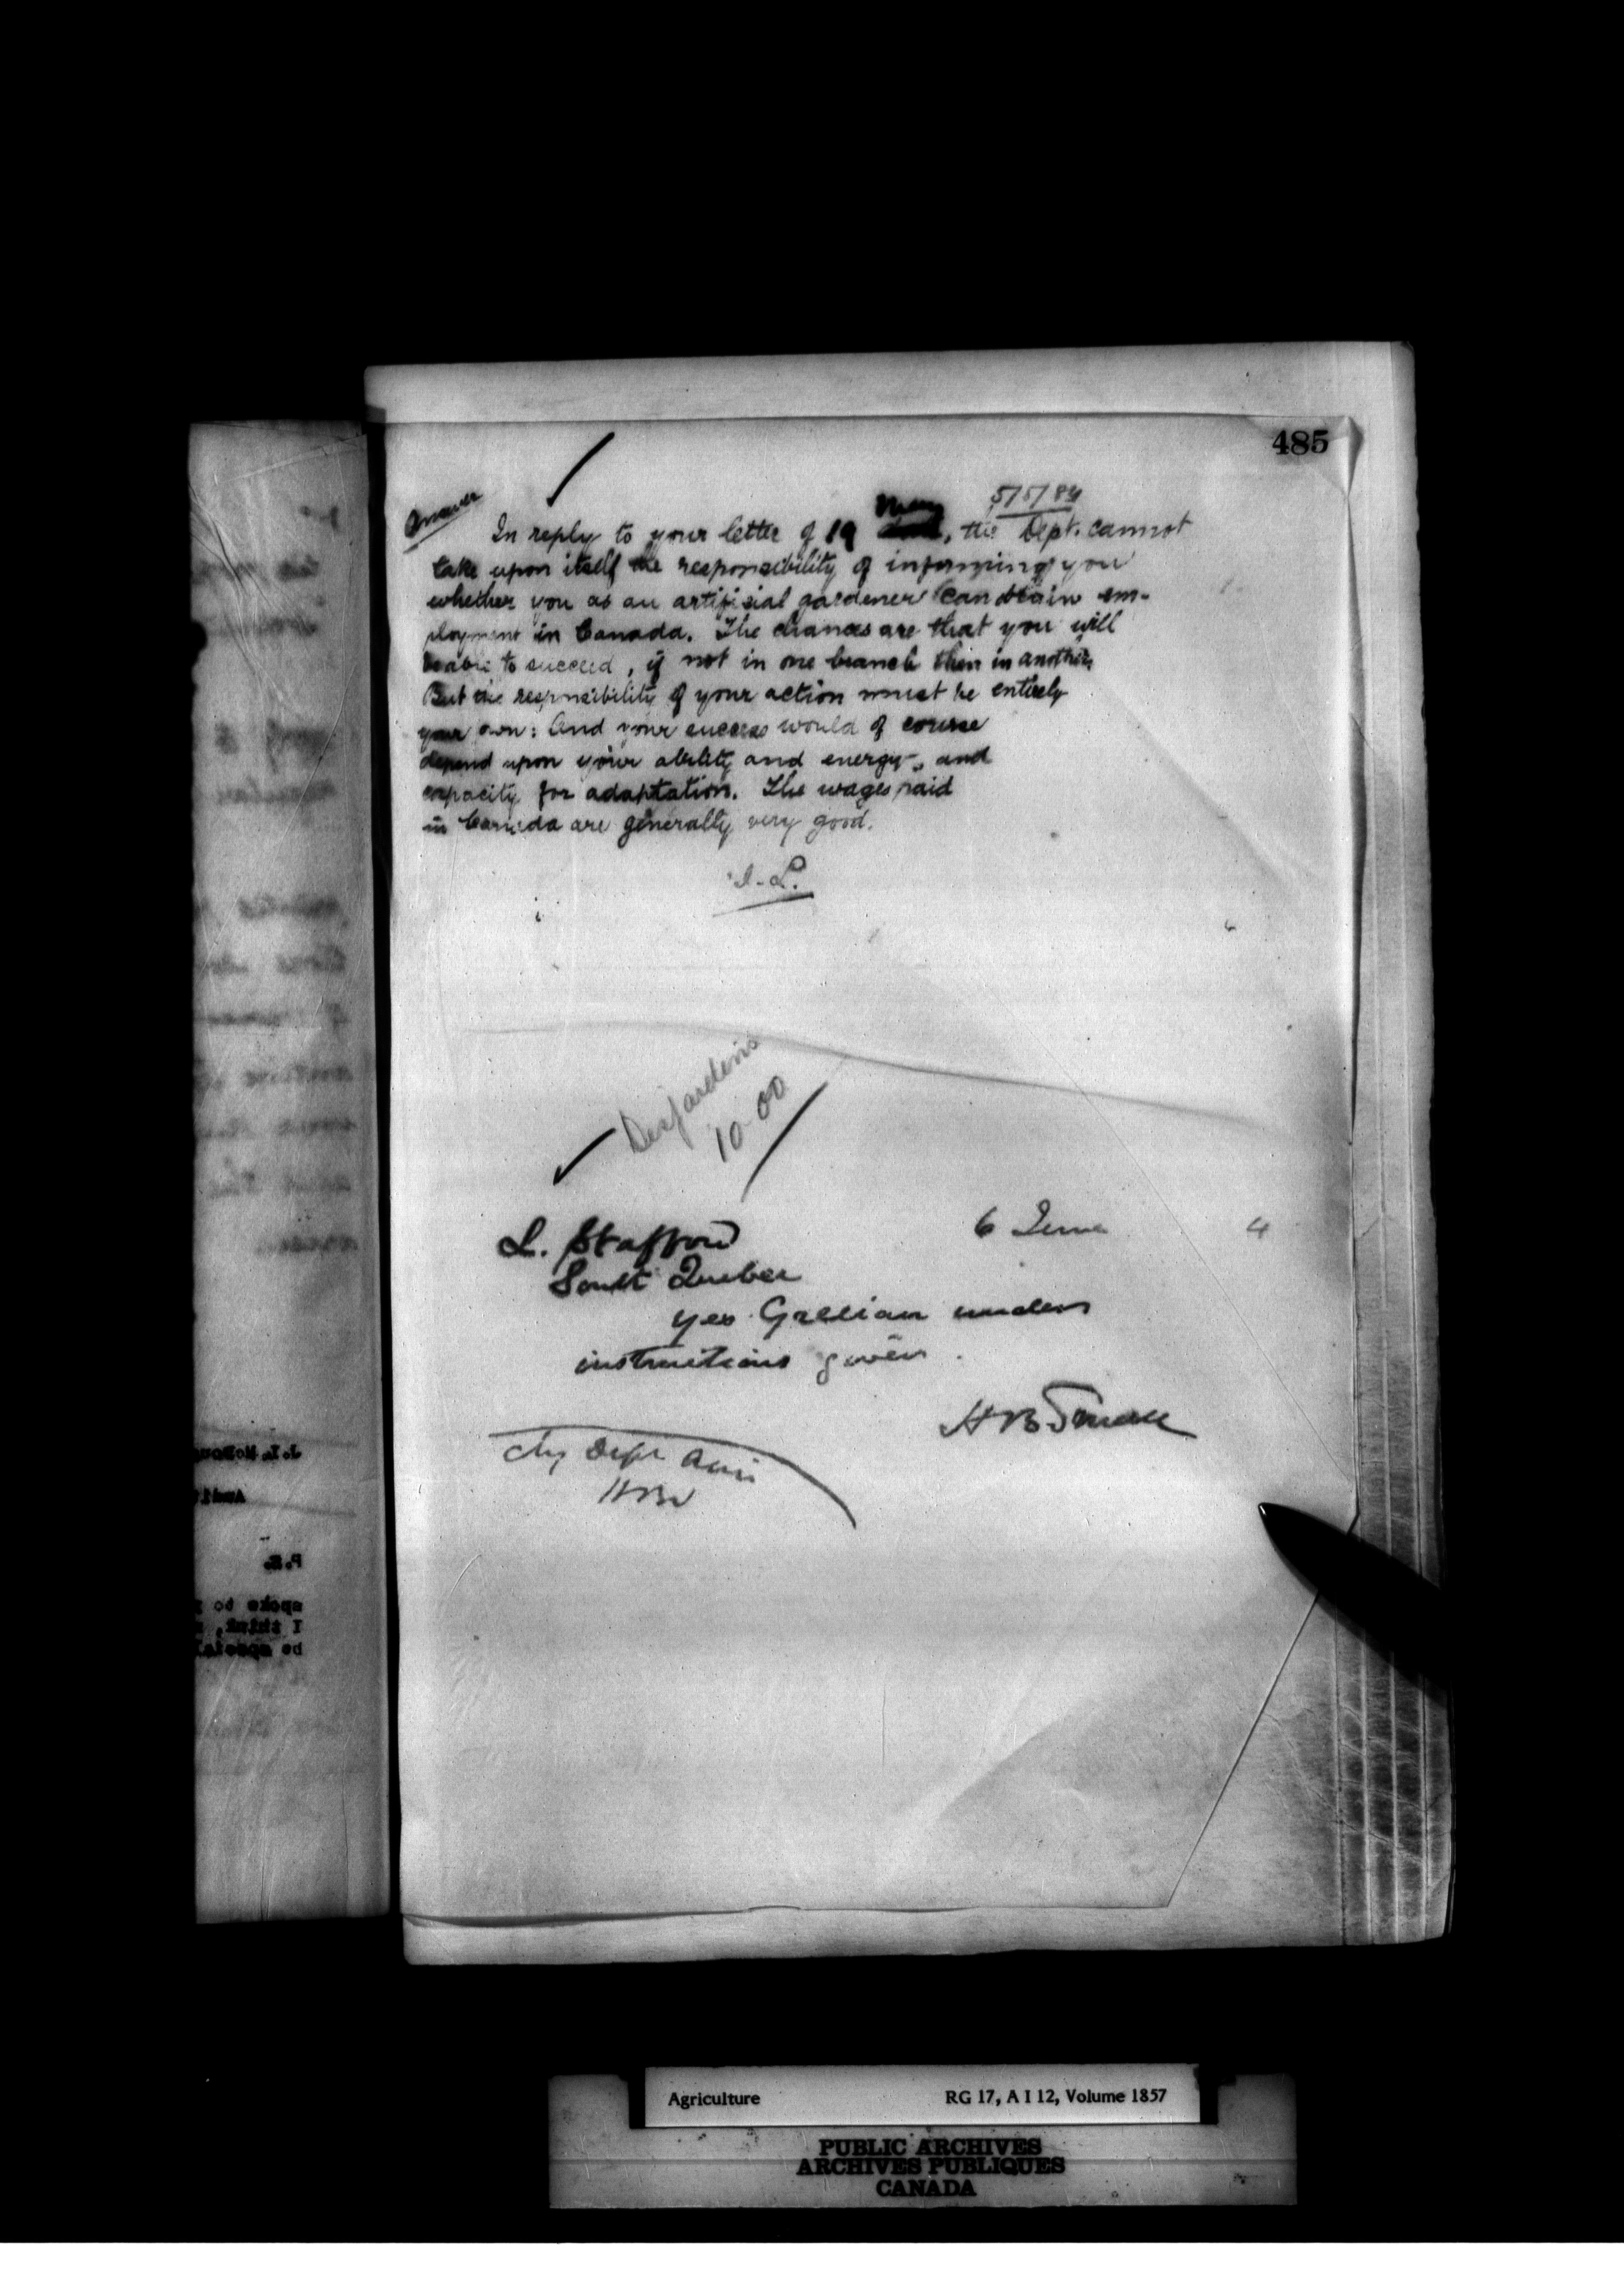 485
Answer
5/5/84
In reply to your letter of 19 May, the Dept. cannot
take upon itself the responsibility of informing you
whether you as an artificial gardener can obtain em-
ployment in Canada. The chances are that you will
be able to succeed, if not in one branch then in another,
But the responsibility of your action must be entirely
your own: And your success would of course
depend upon your ability and energy, and
capacity for adaptation. The wages paid
in Canada are generally very good.
J.L.
Desjardins
10.00
L. Stafford
6 June 4
South Quebec
yes Grecian under
instructions given.
H B Small
Chg Dept Agri
HBS
J.I. McDou
Audi
P.S.
spoke to
I think,
be special
Agriculture RG 17, A I 12, Volume 1857
PUBLIC ARCHIVES
ARCHIVES PUBLIQUES
CANADA